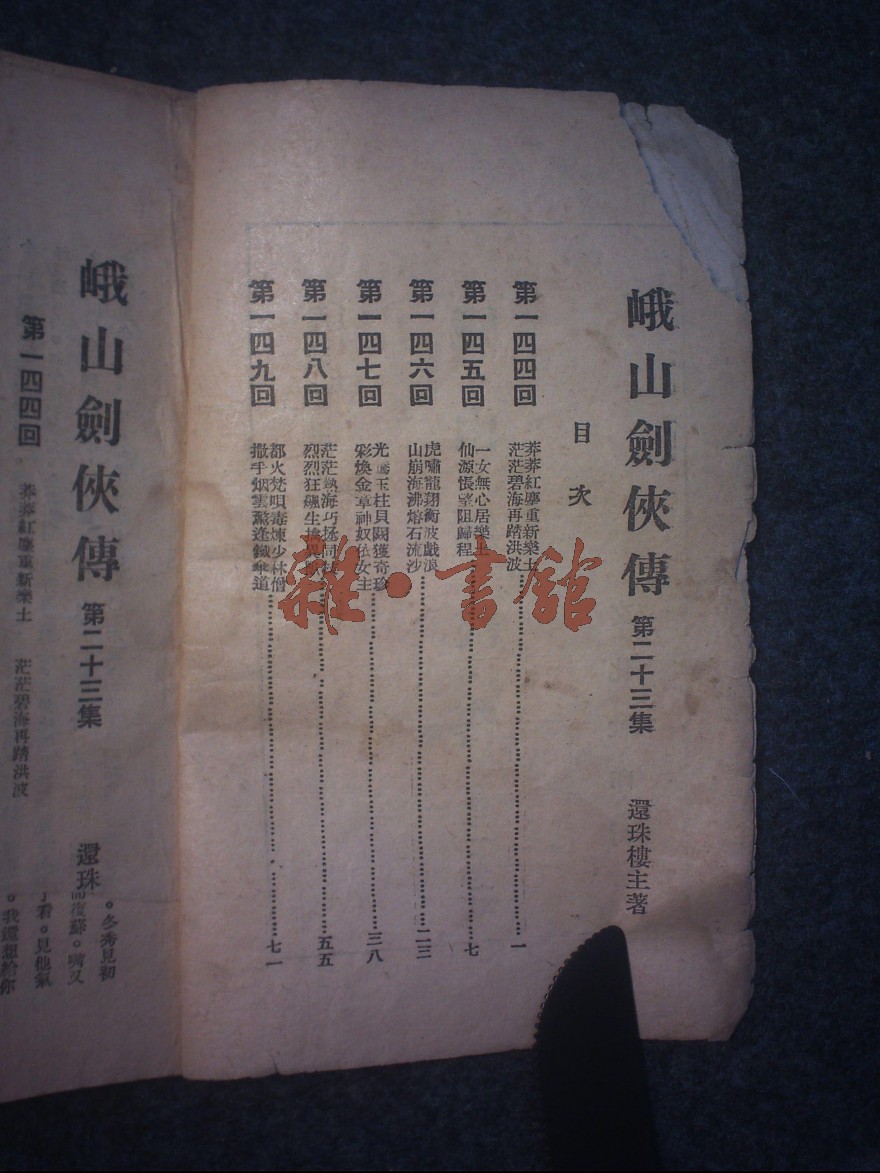 峨山劍俠傳 第二十三集 還珠樓主著
目次
第一四四回 莽莽紅塵重新樂土 茫茫碧海再踏洪波 一
第一四五回 一女無心居樂土 仙源悵望阻歸程 七
第一四六回 虎嘯龍翔衡波戲浪 山崩海沸熔石流沙 二三
第一四七回 光 玉柱貝闕獲奇珍 彩煥金章神奴依女主 三八
第一四八回 茫茫熱海巧拯同 烈烈狂飆生擒 五五
第一四九回 都火梵唄毒煉少林僧 撒手烟雲驚逢鐵傘道 七一
雜·書館
峨山劍俠傳 第二十三集 還珠
第一四四回 莽莽紅塵重新樂土 茫茫碧海再踏洪波
。冬秀見初
而復蘇。嘴又
看。見他氣
。我還想給你